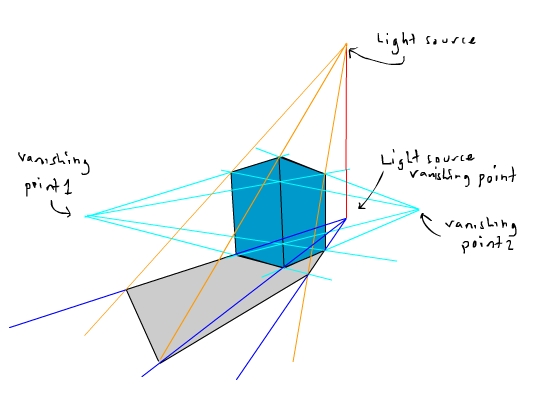 Light source
vanishing
point 1
Light source
vanishing point
vanishing
point 2